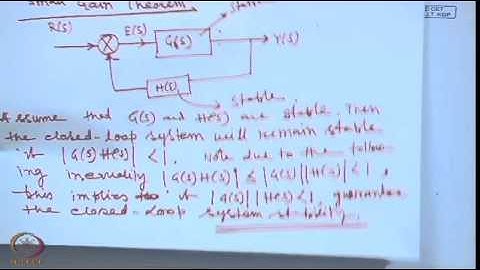 Small Gain Theorem
stable
R(s) E(s) G(s) Y(s)
H(s)
stable.
Assume that G(s) and H(s) are stable. Then
the closed-loop system will remain stable
if |G(s)H(s)| < 1. Note due to the follow-
ing inequality |G(s)H(s)| ≤ |G(s)||H(s)| < 1,
this implies if |G(s)||H(s)| < 1, guarantee
the closed-loop system stability.